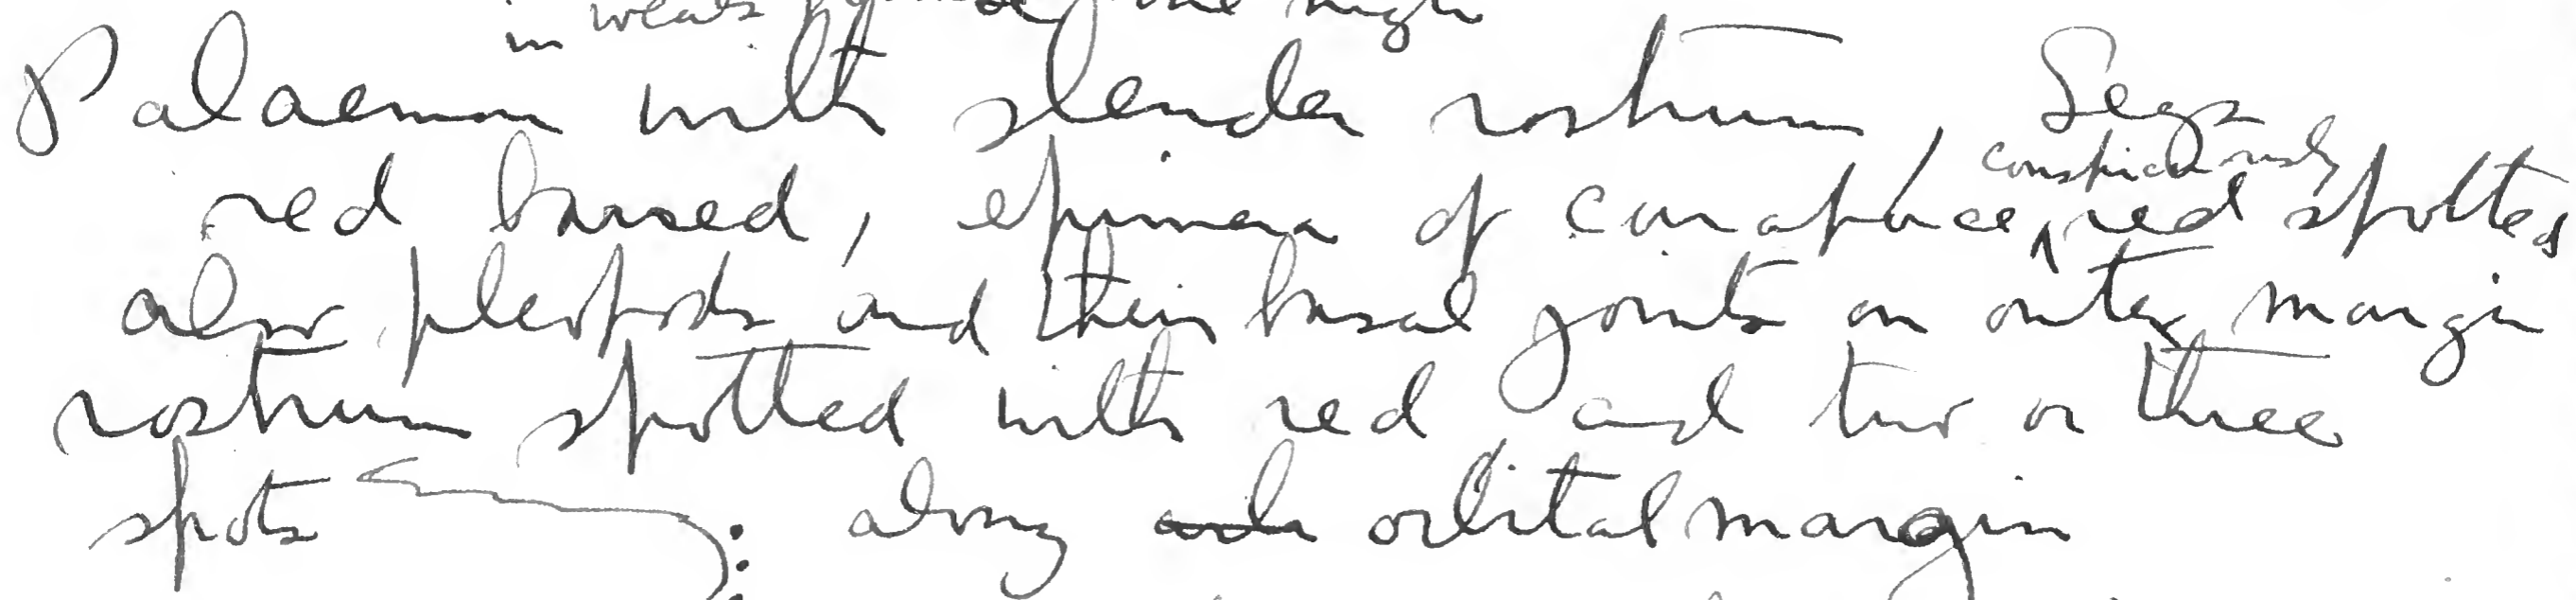 in
Palaemon with slender rostrum, Legs
red barred, epimera of carapace, conspicuously red spotted
also pleopods and their basal joints on outer margin
rostrum spotted with red and two or three
spots along orbital margin